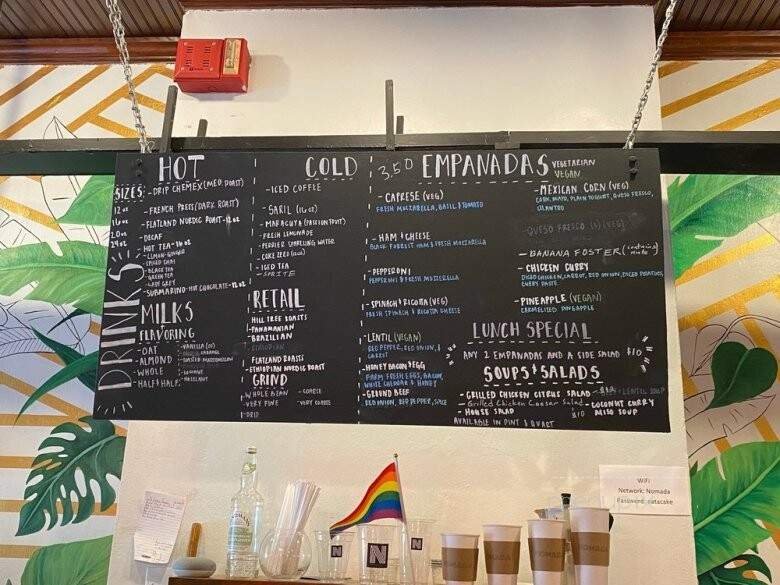 HOT
SIZES:
12 oz
16 oz
20 oz
24 oz
- DRIP CHEMEX (MED. ROAST)
- FRENCH PRESS (DARK ROAST)
- FLATLAND NORDIC ROAST - 12 oz
- DECAF
- HOT TEA - 16 oz
- LEMON-GINGER
- SPICED CHAI
- BLACK TEA
- GREEN TEA
- EARL GREY
- SUBMARINO - HOT CHOCOLATE - 12 oz
DRINKS
MILKS
FLAVORING
- OAT
- ALMOND
- WHOLE
- HALF & HALF
- VANILLA
- HAZELNUT
COLD
- ICED COFFEE
- SARIL (16 oz)
- MARACUYA (PASSION FRUIT)
- FRESH LEMONADE
- PERRIER SPARKLING WATER
- COKE ZERO
- ICED TEA
- SPRITE
RETAIL
HILL TREE ROASTS
- PANAMANIAN
- BRAZILIAN
- ETHIOPIAN
FLATLAND ROASTS
- ETHIOPIAN NORDIC ROAST
GRIND
- WHOLE BEAN
- VERY FINE
- DRIP
- COARSE
- VERY COARSE
3.50 EMPANADAS
VEGETARIAN
VEGAN
- CAPRESE (VEG)
FRESH MOZZARELLA, BASIL & TOMATO
- HAM & CHEESE
BLACK FORREST HAM & FRESH MOZZARELLA
- PEPPERONI
PEPPERONI & FRESH MOZZARELLA
- SPINACH & RICOTTA (VEG)
FRESH SPINACH & RICOTTA CHEESE
- LENTIL (VEGAN)
RED PEPPER, RED ONION, &
CARROT
- HONEY BACON & EGG
FARM FRESH EGGS, BACON,
WHITE CHEDDAR & HONEY
- GROUND BEEF
RED ONION, RED PEPPER, SPICE
- MEXICAN CORN (VEG)
CORN, MAYO, PLAIN YOGURT, QUESO FRESCO,
CILANTRO
QUESO FRESCO (VEG)
- BANANA FOSTER (contains nuts)
- CHICKEN CURRY
DICED CHICKEN, CARROT, RED ONION, DICED POTATOES,
CURRY PASTE
- PINEAPPLE (VEGAN)
CARAMELIZED PINEAPPLE
LUNCH SPECIAL
ANY 2 EMPANADAS AND A SIDE SALAD $10
SOUPS & SALADS
- GRILLED CHICKEN CITRUS SALAD
- Grilled Chicken Caesar Salad
- HOUSE SALAD
$10
LENTIL SOUP
- COCONUT CURRY
MISO SOUP
AVAILABLE IN PINT & QUART
WiFi
Network: Nomada
Password: catacake
N
N
N
NOMADA
NOMADA
NOMADA
NOMADA